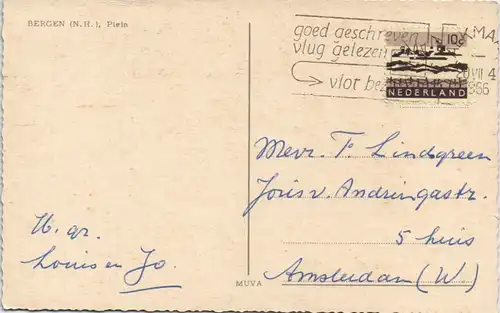 BERGEN (N.H.), Plein
goed geschreven
vlug gelezen
vlot bez
10c
NEDERLAND
Mevr. T. Lindgreen
Joris v. Andringastr.
5 huis
Amsterdam (W.)
H. gr.
Louis en Jo.
MUVA